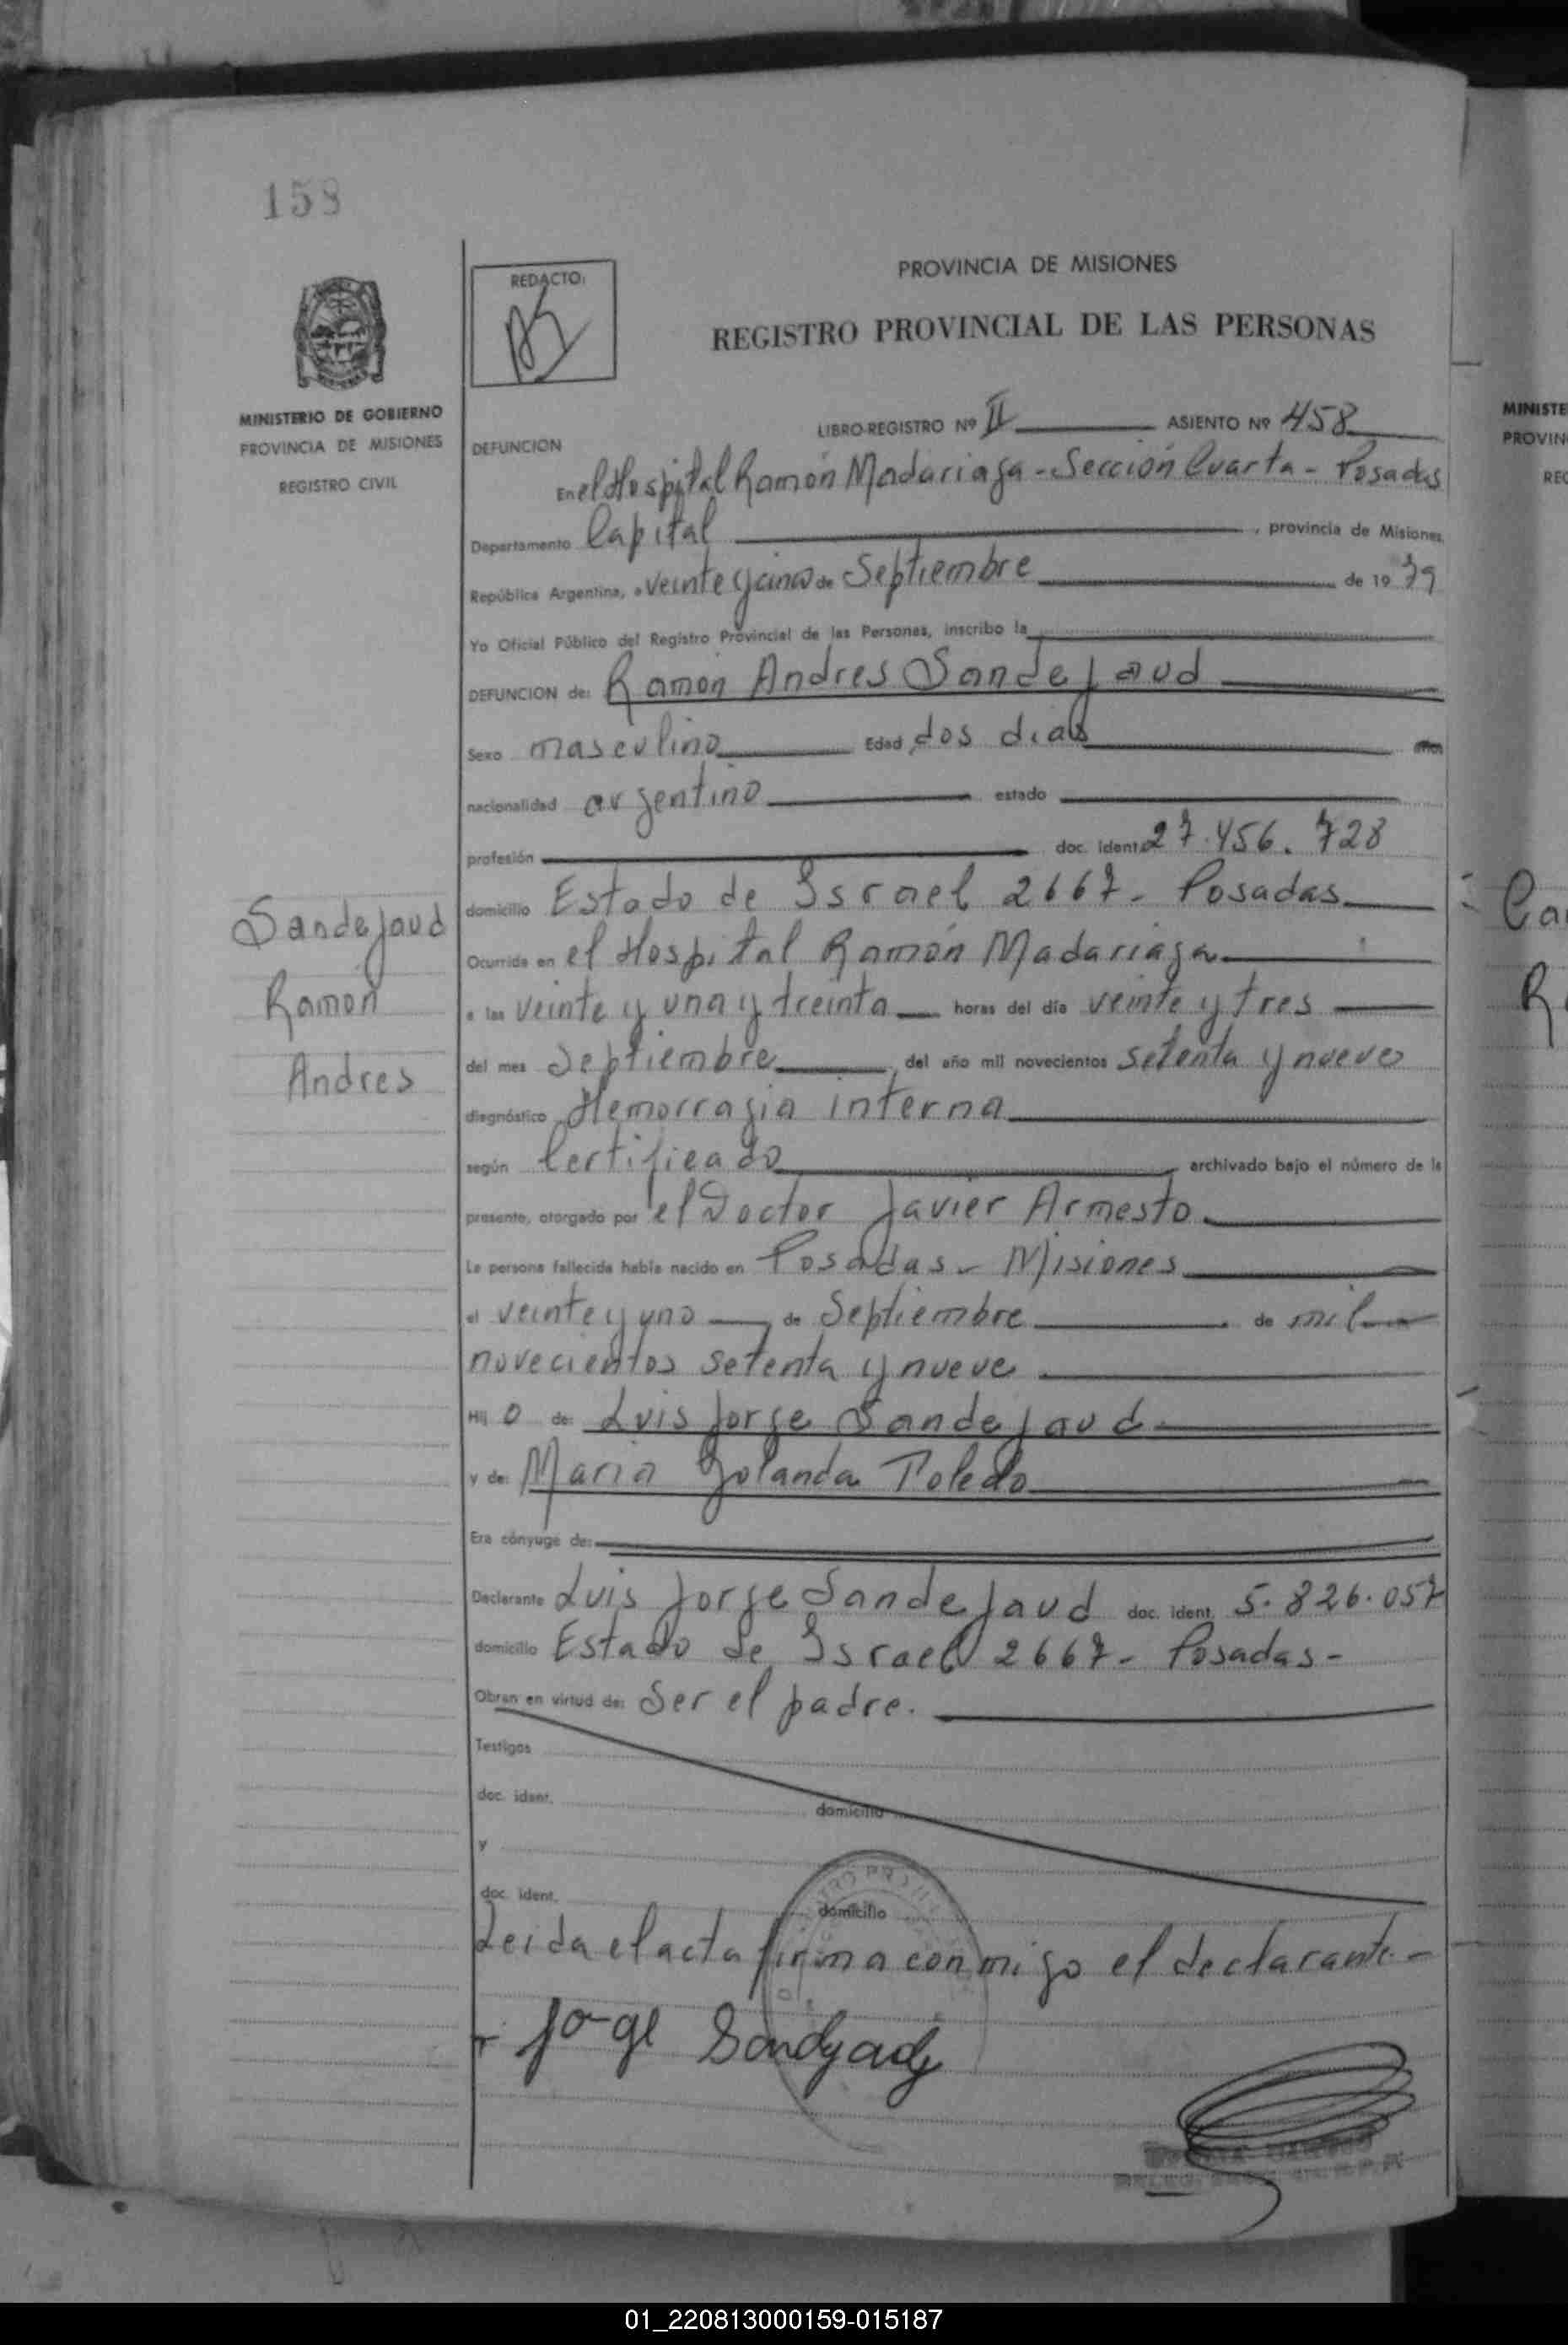 158
PROVINCIA DE MISIONES
REDACTO:
REGISTRO PROVINCIAL DE LAS PERSONAS
MINISTERIO DE GOBIERNO
PROVINCIA DE MISIONES
REGISTRO CIVIL
LIBRO-REGISTRO Nº II ASIENTO Nº 458
DEFUNCION
En el Hospital Ramón Madariaga - Sección Cuarta - Posadas
Departamento Capital, provincia de Misiones,
República Argentina, a veinte y cinco de Septiembre de 19 79
Yo Oficial Público del Registro Provincial de las Personas, inscribo la
DEFUNCION de: Ramón Andres Sandejaud
Sexo masculino Edad dos dias
nacionalidad argentino estado
profesión doc. ident. 27.456.728
domicilio Estado de Israel 2667 - Posadas
Ocurrida en el Hospital Ramón Madariaga
a las veinte y una y treinta horas del día veinte y tres
del mes Septiembre, del año mil novecientos setenta y nueve
diagnóstico Hemorragia interna
según Certificado archivado bajo el número de la
presente, otorgado por el Doctor Javier Armesto
La persona fallecida había nacido en Posadas - Misiones
el veinte y uno de Septiembre de mil
novecientos setenta y nueve
Hij o de: Luis Jorge Sandejaud
y de: Maria Yolanda Toledo
Era cónyuge de:
Declarante Luis Jorge Sandejaud doc. ident. 5.826.057
domicilio Estado de Israel 2667 - Posadas -
Obran en virtud de: Ser el padre.
Testigos
doc. ident. domicilio
y
doc. ident. domicilio
Leida el acta firma conmigo el declarante -
Jorge Sandejaud
Sandejaud
Ramon
Andres
MINISTE
PROVIN
REG
Ca
R
01_220813000159-015187